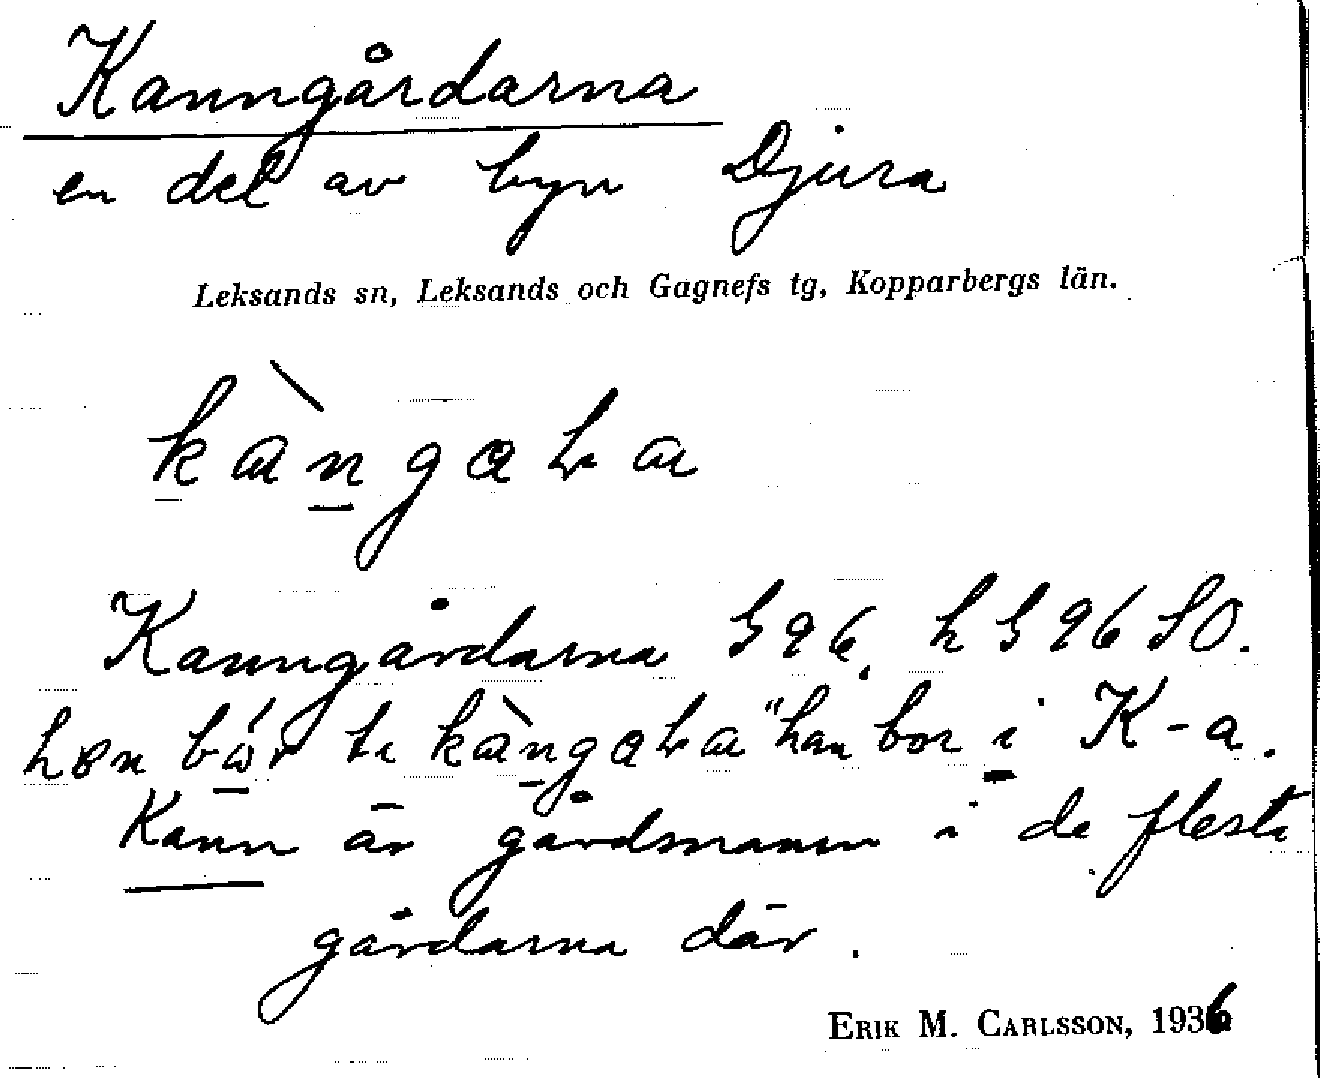 Kanngårdarna
en del av byn Djura
Leksands sn, Leksands och Gagnefs tg, Kopparbergs län.
Kanngårdarna G 96, h G 96 SO.
"han bor i K-a.
Kann är gårdsnamn i de flesta
gårdarna där.
ERIK M. CARLSSON, 1936